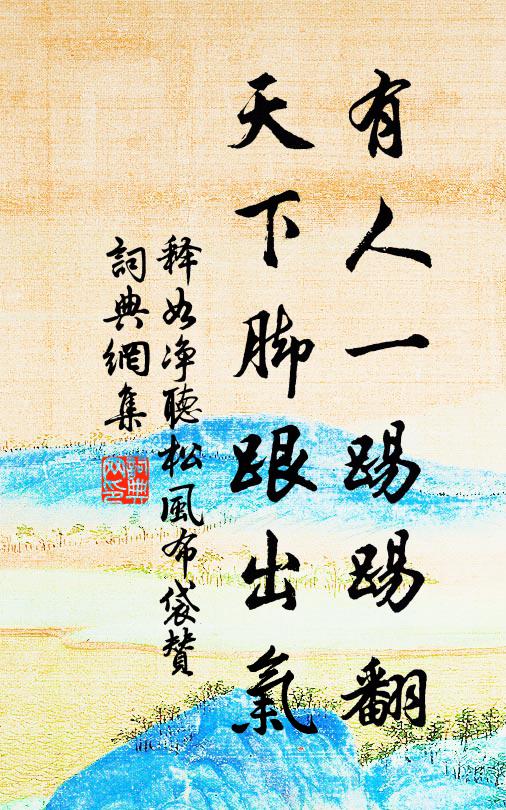 有人一踢踢翻
天下脚跟出氣
释如净聽松風布袋贊
詞典網集